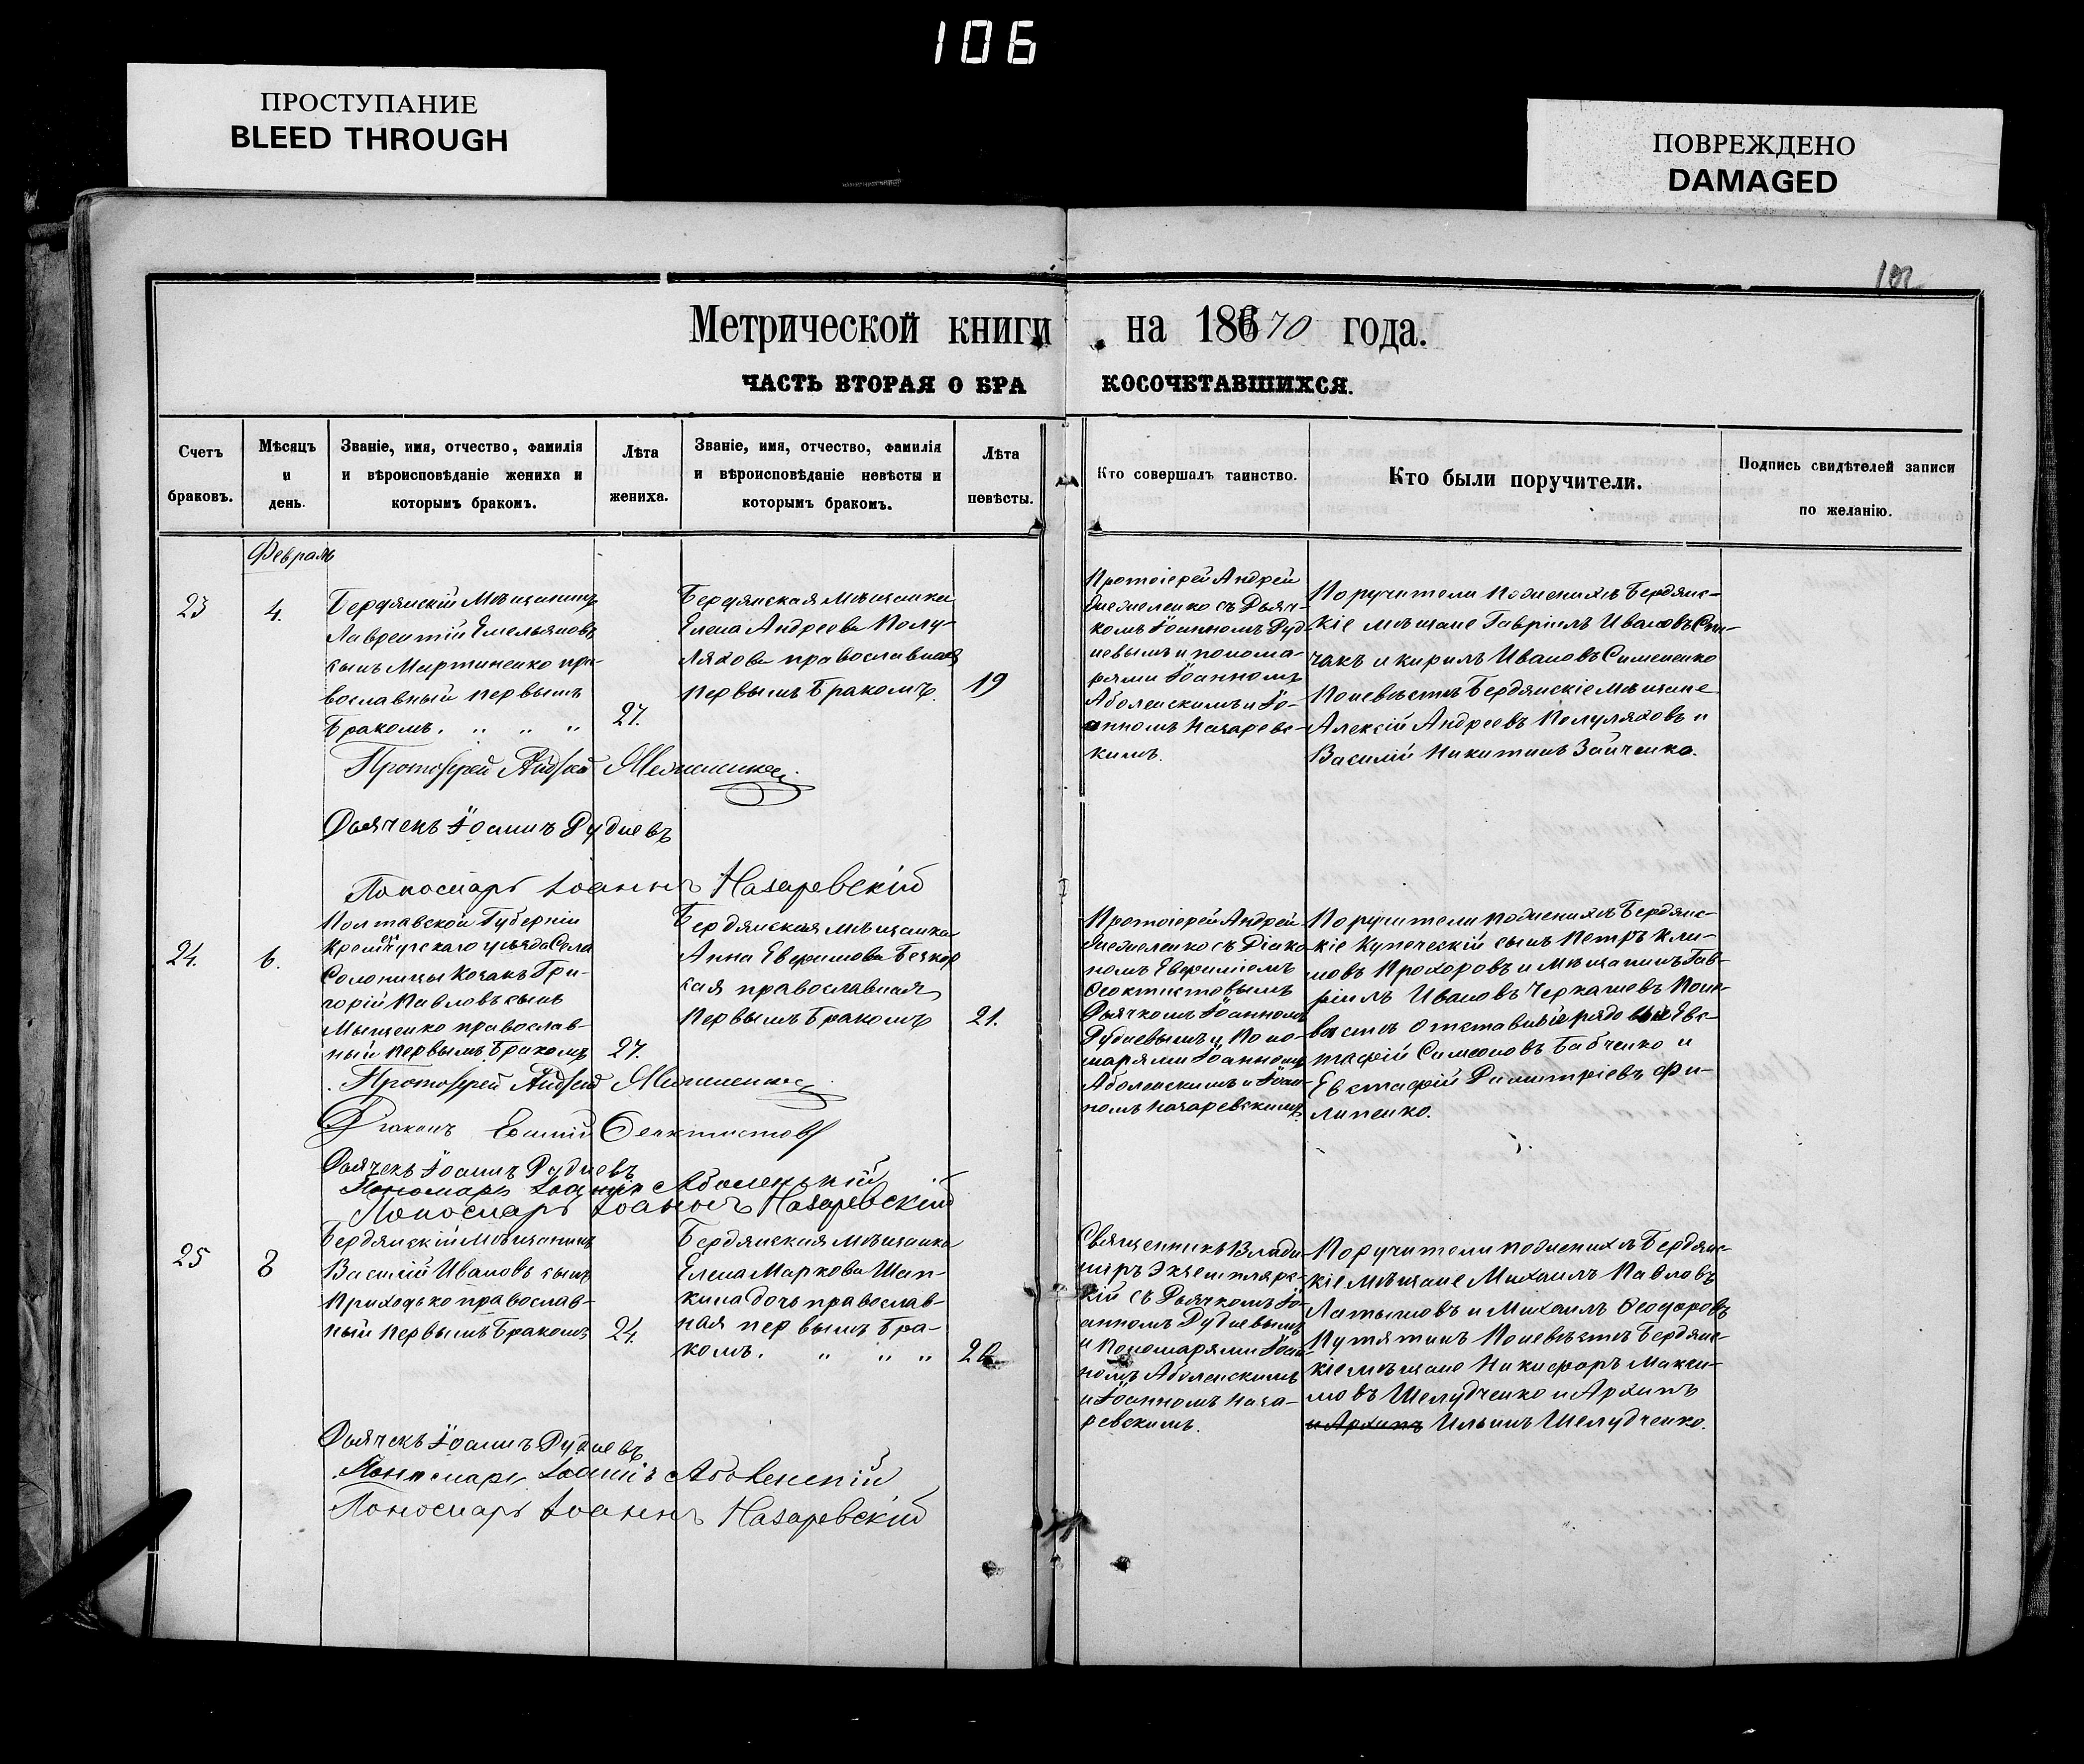 106
ПРОСТУПАНИЕ
BLEED THROUGH
ПОВРЕЖДЕНО
DAMAGED
102
Метрической книги на 18670 года.
ЧАСТЬ ВТОРАЯ О БРАКОСОЧЕТАВШИХСЯ.
Счетъ браковъ.
Мѣсяцъ и день.
Званіе, имя, отчество, фамилія
и вѣроисповѣданіе жениха и
которымъ бракомъ.
Лѣта жениха.
Званіе, имя, отчество, фамилія
и вѣроисповѣданіе невѣсты и
которымъ бракомъ.
Лѣта невѣсты.
Кто совершалъ таинство.
Кто были поручители.
Подпись свидѣтелей записи
по желанію.
Февраль
23
4.
Бердянскій Мѣщанинъ
Лаврентій Емельяновъ
сынъ Мартиненко пра-
вославный первымъ
Бракомъ. „ „ „
27.
Бердянская Мѣщанка
Елена Андреева Полу-
ляхова православная
первымъ Бракомъ.
19
Протоіерей Андрей
съ Дьяч-
комъ Іоанномъ Руд-
невымъ и понома-
рями Іоанномъ
Аболенскимъ и Іо-
анномъ Назаревс-
кимъ.
Поручители пожениху Бердянс-
кіе мѣщане Гавріилъ Ивановъ
и кирилъ Ивановъ Симененко
Поневѣстѣ Бердянскіе мѣщане
Алексій Андреевъ Полуляховъ и
Василій Никитинъ Зайченко.
Протоіерей Андрей
Дьячекъ Іоаннъ Рудневъ
Пономарь Іоаннъ Назаревскій
24.
6.
Полтавской Губерніи
Кременчугскаго уѣзда Села
Солоницы Козакъ Гри-
горій Павловъ сынъ
Мыценко православ-
ный первымъ Бракомъ
27.
Бердянская мѣщанка
Анна Евфимова
православная
первымъ Бракомъ
21.
Протоіерей Андрей
съ Діако-
номъ Евфиміемъ
Ѳеоктистовымъ
Дьячкомъ Іоанномъ
Рудневымъ и Поно-
марями Іоанномъ
Аболенскимъ и Іоан-
номъ Назаревскимъ.
Поручители пожениху Бердянс-
кіе Купеческій сынъ Петръ Кли-
мовъ Прохоровъ и мѣщанинъ Гав-
ріилъ Ивановъ Черкашевъ Поне-
вѣстѣ отставные рядовые Евс-
тафій Симеоновъ Бабченко и
Евстафій Димитріевъ Фи-
липенко.
Протоіерей Андрей
Діаконъ Ѳеоктистовъ
Дьячекъ Іоаннъ Рудневъ
Пономарь Іоаннъ Аболенскій
Пономарь Іоаннъ Назаревскій
25
8
Бердянскій мѣщанинъ
Василій Ивановъ сынъ
Приходько православ-
ный первымъ Бракомъ
24
Бердянская мѣщанка
Елена Маркова Шап-
кина дочь православ-
ная первымъ Бра-
комъ. „ „ „
Священникъ Влади-
міръ Экземпляр-
кій съ Дьячкомъ Іо-
анномъ Рудневымъ
и Пономарями Іоан-
номъ Аболенскимъ
и Іоанномъ Наза-
ревскимъ.
Поручители пожениху Бердянс-
кіе мѣщане Михаилъ Павловъ
Латышовъ и Михаилъ Ѳеодоровъ
Путятинъ Поневѣстѣ Бердянс-
кіе мѣщане Никифоръ Макси-
мовъ Шелудченко и Архипъ
и Архипъ Ильинъ Шелудченко.
Дьячекъ Іоаннъ Рудневъ
Пономарь Іоаннъ Аболенскій
Пономарь Іоаннъ Назаревскій